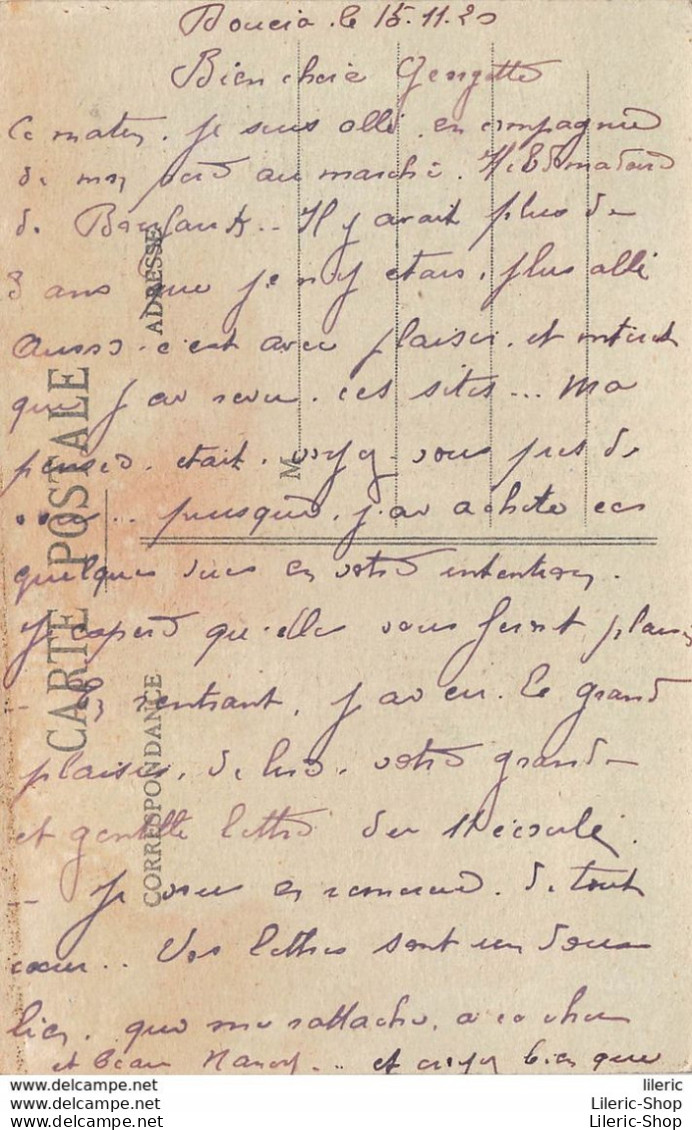 le 15.11.20
Bien chère Georgette
Ce matin. je suis allé. en compagnie
de mon père au marché. Hebdomadaire
de .. Il y avait plus de
3 ans que je n'y étais. plus allé
Aussi. c'est avec plaisir. et intérêt
que j'ai revu. ces sites... Ma
pensée. était. voyez-vous près de
vous... puisque. j'ai acheté ces
quelques vues en votre intention.
J'espère qu'elles vous feront plaisir
- En rentrant, j'ai eu. le grand
plaisir. de lire. votre grande
et gentille lettre du 11 écoulé.
- Je vous en remercie. de tout
cœur.. Vos lettres sont un doux
lien. qui me rattache. a ce cher
et beau Nancy... et croyez bien que
CARTE POSTALE
CORRESPONDANCE
ADRESSE
M
lileric
Lileric-Shop
Lileric-Shop